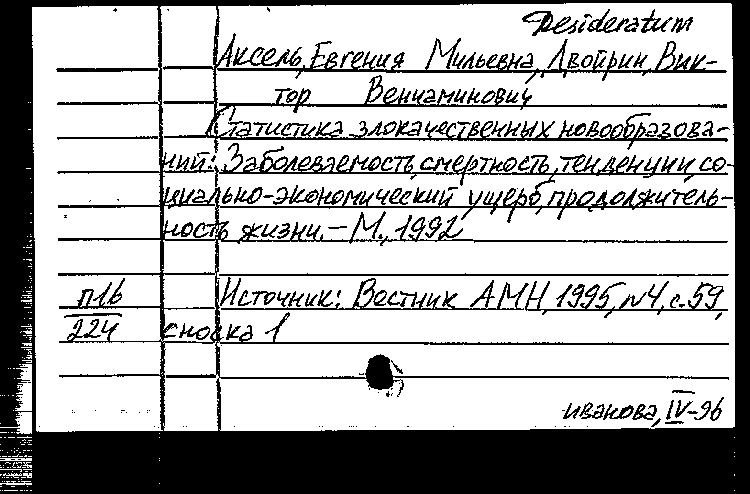 Desideratum
Аксель, Евгения Мильевна, Двойрин, Вик-
тор Вениаминович
Статистика злокачественных новообразова-
ний: Заболеваемость, смертность, тенденции, со-
циально-экономический ущерб, продолжитель-
ность жизни. – М., 1992
п16 Источник: Вестник АМН, 1995, N4, с. 59,
224 сноска 1
иванова, IV-96